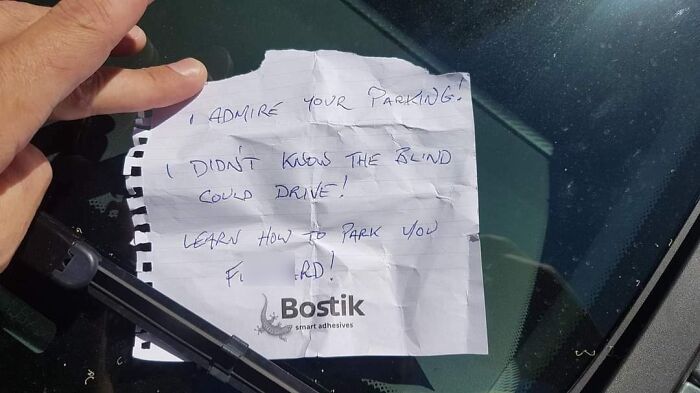 I ADMIRE YOUR PARKING!
I DIDN'T KNOW THE BLIND
COULD DRIVE!
LEARN HOW TO PARK YOU
RD!
Bostik
smart adhesives